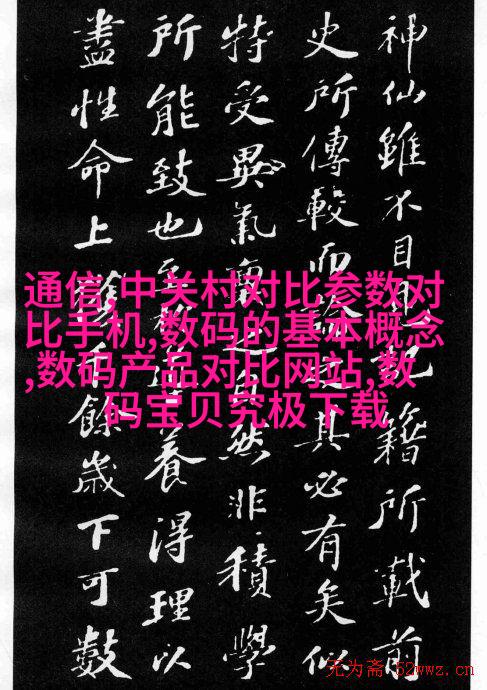 神仙雖不目見記籍所載前
史所傳較而之其必有矣似
特受異氣自然非積學
所能致也至養得理以
盡性命上千餘歲下可數
通信,中关村对比参数对
比手机,数码的基本概念
,数码产品对比网站,数
码宝贝究极下载
无为斋 52wwz.cn